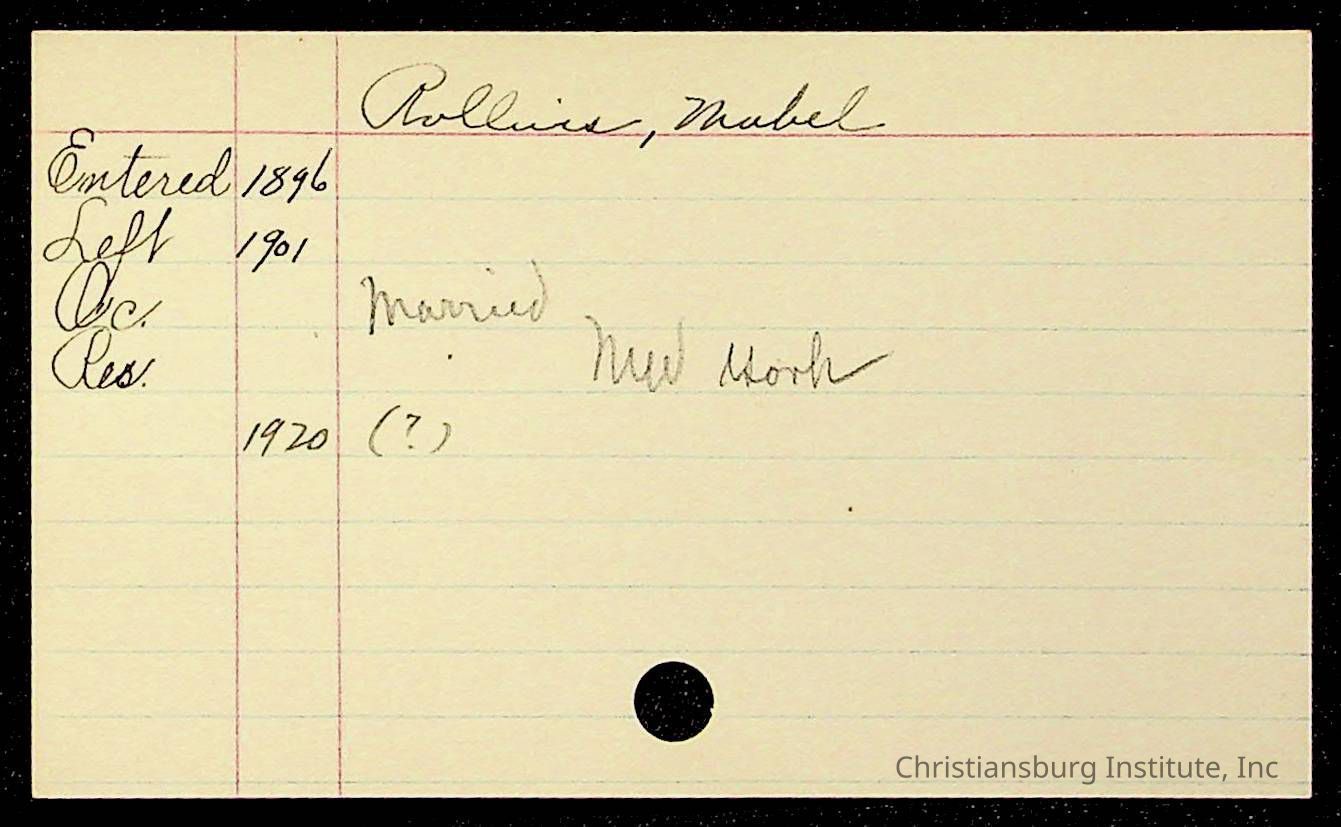 Rollins, Mabel
Entered 1896
Left 1901
Oc. Married
Res. New York
1920 (?)
Christiansburg Institute, Inc